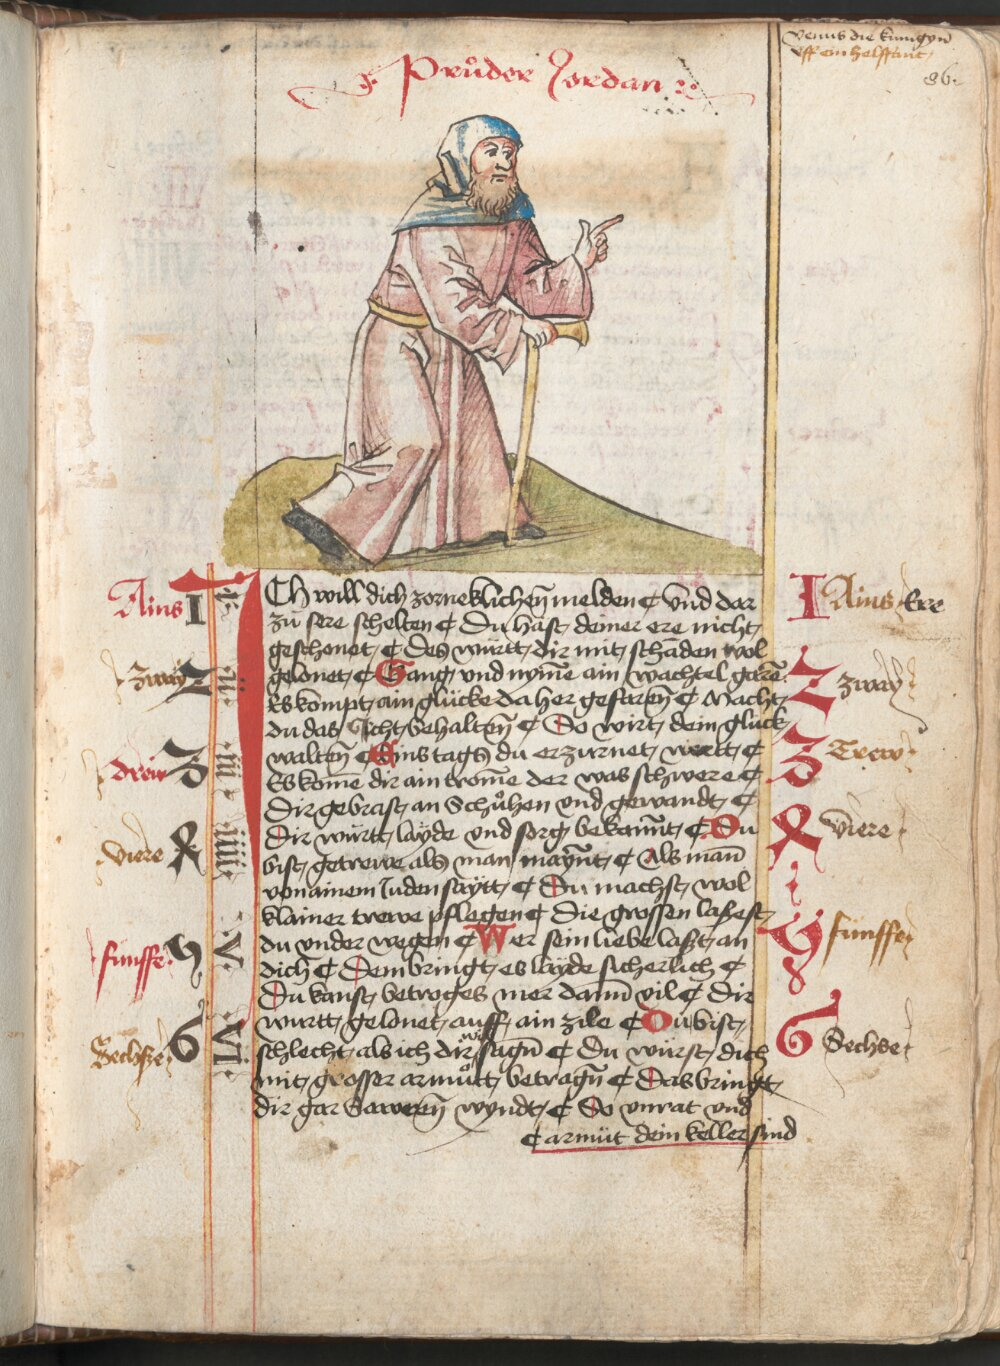 venus die kunigyn
uff ein helffant
86.
Průder Jordan
Ains I
zway 2
drew 3
viere 4
fünffe 5
Sechße 6
i
ii
iii
iiii
V
VI
ICh will dich zorneklichen̄ melden ¶ Vnd dar
zů sere schelten ¶ Du hast deiner ere nicht
geschonet ¶ Des württ dir mit schaden wol
gelonet ¶ Gang und nym̄e ain wachtel garē
Es kompt ain glücke da her gefaren̄ ¶ Macht
du das Icht behalten̄ ¶ So wirt dein glück
walten̄ ¶ Eins tags du erzurnet wertt ¶
Es kom̄e dir ain trom̄e der was schwere ¶
Dir gebrast an Schůhen vnd gewandt ¶
Dir württ layde vnd sorg bekannt ¶ Du
bist getrewe als man maynt ¶ Als man̄
von ainem Juden saytt ¶ Du machst wol
klainer trewe pflegen ¶ Die grossen laßest
du vnder wegen ¶ Wer sein liebe laßt an
dich ¶ Dem bringt es layde sicherlich ¶
Du kanst betroges mer dann̄ vil ¶ Dir
wurtt gelonet auff ain zile ¶ Du bist
schlecht als ich dir sagn̄ ¶ Du würst dich
mit grosser armůtt betragn̄ ¶ Das bringt
dir gar Sawern̄ wyndt ¶ So vnrat vnd
¶ armüt dein keller sind
I Ains Ere
2 zway
3 Trew
4 viere
5 fünffe
8
6 Sechse